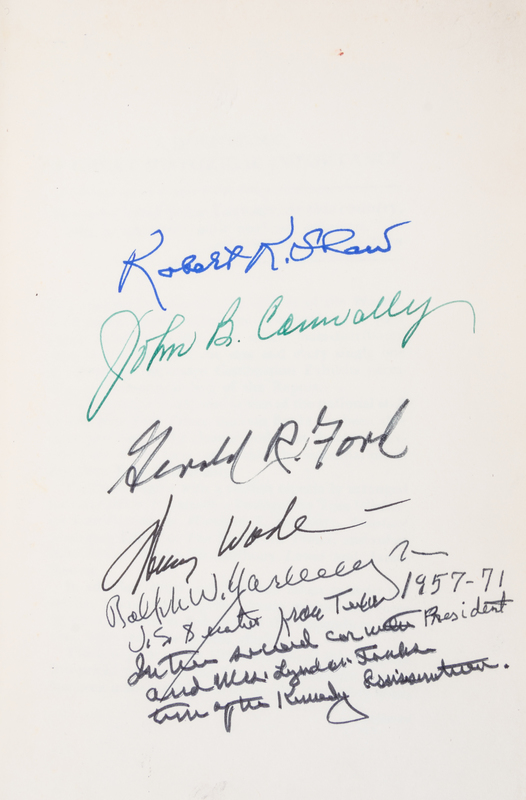 Robert K. Shaw
John B. Connally
Gerald R. Ford
Henry Wade
Ralph W. Yarborough
U.S. Senator from Texas 1957-71
In the second car with President
and Mrs. Lyndon
time of the Kennedy Assassination.